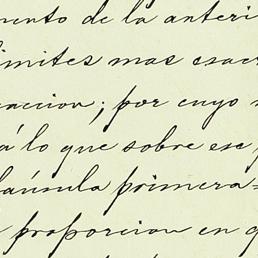 mento de la anteri
límites mas esac
nacion; por cuyo
á lo que sobre ese
laúsula primera=
proporcion en q